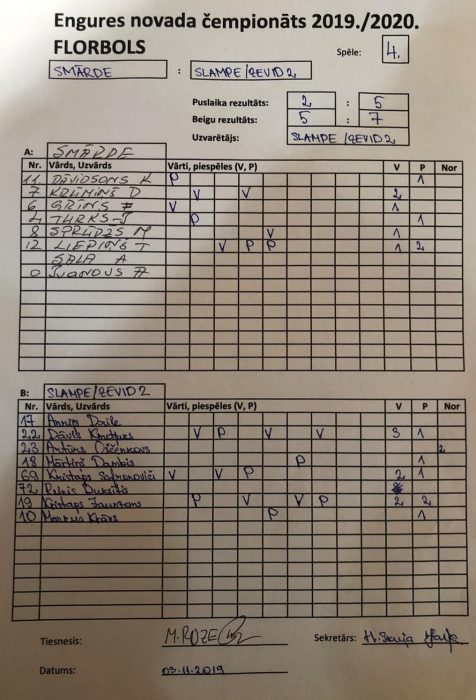 Engures novada čempionāts 2019./2020.
FLORBOLS
Spēle: 4.
SMĀRDE : SLAMPE/ZEVID 2
Puslaika rezultāts: 2 : 5
Beigu rezultāts: 5 : 7
Uzvarētājs: SLAMPE/ZEVID 2
A: SMĀRDE
Nr. Vārds, Uzvārds Vārti, piespēles (V, P) V P Nor
11 DĀVIDSONS K P 1
7 KRŪMIŅŠ D V V 2
6 GRĪNS V 1
4 TURKS J P 1
8 SPRŪDŽS M V 1
12 LIEPIŅŠ T V P P 1 2
SALA A
0 IVANOUS A
B: SLAMPE/ZEVID 2
Nr. Vārds, Uzvārds Vārti, piespēles (V, P) V P Nor
17
22 Dāvis V P V V 3 1
23 Artūrs 2
18 Mārtiņš Dambis P 1
69 Kristaps V V P 2 1
72
19 Kristaps Jaunzems P V V P 2 2
10 Markus P 1
Tiesnesis: M.ROZE Sekretārs:
Datums: 03.11.2019